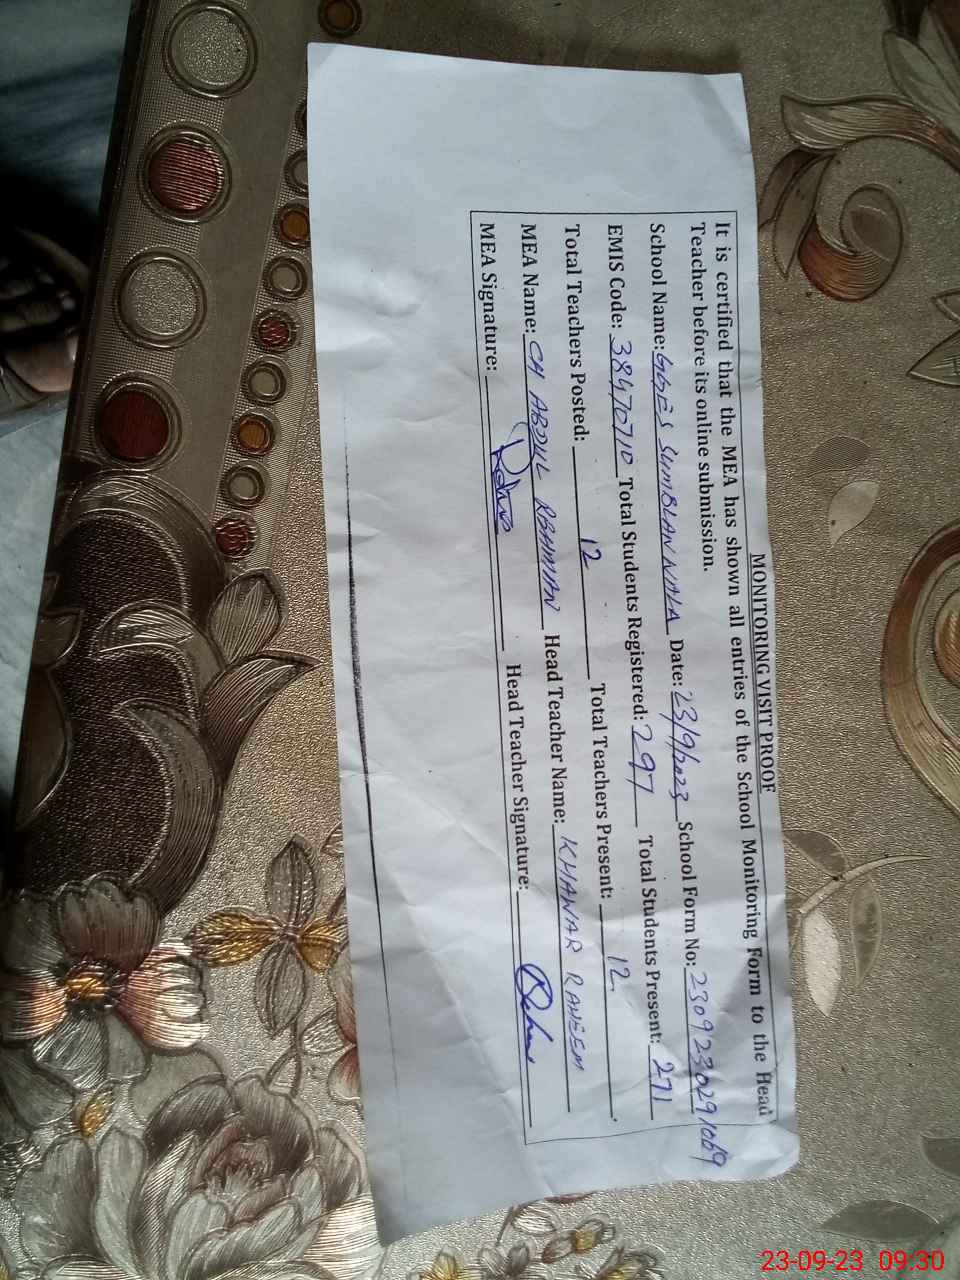 MONITORING VISIT PROOF
It is certified that the MEA has shown all entries of the School Monitoring Form to the Head
Teacher before its online submission.
School Name: GGES SUMBLANWALA Date: 23/9/2023 School Form No: 2309230291069
EMIS Code: 38470710 Total Students Registered: 297 Total Students Present: 271
Total Teachers Posted: 12 Total Teachers Present: 12.
MEA Name: CH ABDUL REHMAN Head Teacher Name: KHAWAR RANEEM
MEA Signature: Head Teacher Signature:
23-09-23 09:30